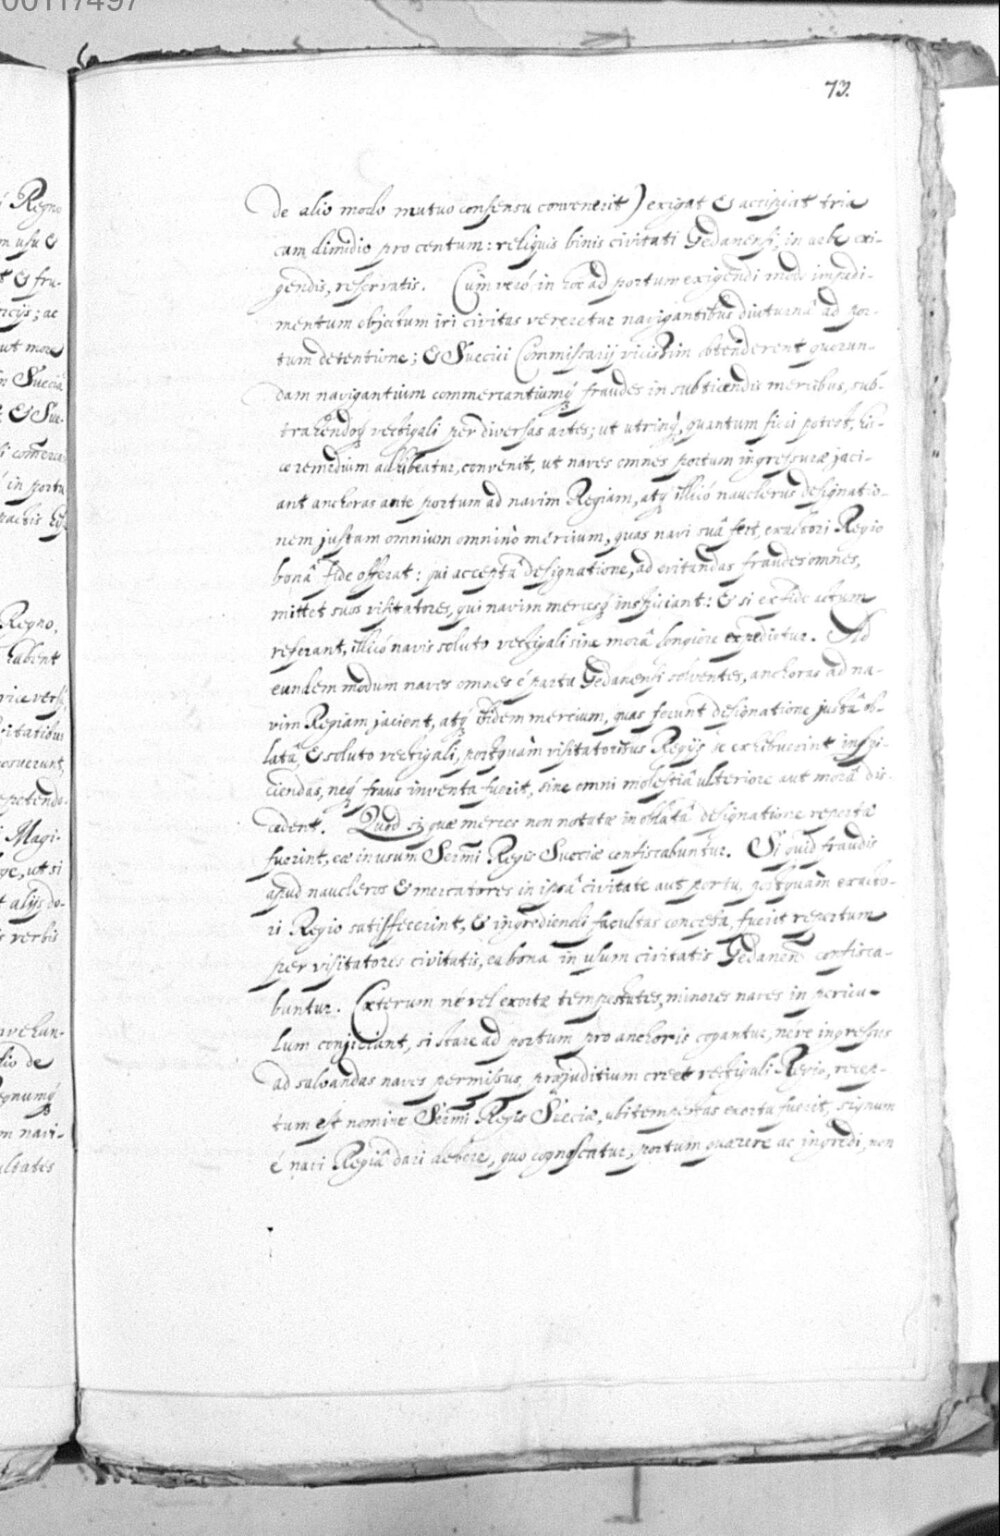 00117497
73.
de alio modo mutuo consensu convenerit) exigat & accipiat tria
cum dimidio pro centum: reliquis binis civitati Gedanensi, in urbe exi-
gendis, reservatis. Cùm verò in hoc ad portum exigendi modo impedi-
mentum objectum iri civitas vereretur navigantibus diuturnâ ad por-
tum detentione; & Suecici Commissarij vicissim obtenderent quorun-
dam navigantium commercantiumq; fraudes in subticendis mercibus, sub-
trahendoq; vectigali per diversas artes; ut utrinq;, quantum fieri potest, hu-
ic remedium adhibeatur, convenit, ut naves omnes portum ingressuræ jaci-
ant anchoras ante portum ad navim Regiam, atq; illicò nauclerus designatio-
nem justam omnium omninò mercium, quas navi suâ fert, exactori Regio
bonâ fide offerat: qui acceptâ designatione, ad evitandas fraudes omnes,
mittet suos visitatores, qui navim mercesq; inspiciant: & si ex fide actum
referant, illicò navis soluto vectigali sine morâ longiore expedietur. Ad
eundem modum naves omnes è portu Gedanensi solventes, anchoras ad na-
vim Regiam jacient, atq; ibidem mercium, quas ferunt designatione justâ ob-
latâ, & soluto vectigali, postquàm visitatoribus Regijs se exhibuerint inspi-
ciendas, neq; fraus inventa fuerit, sine omni molestiâ ulteriore aut morâ dis-
cedent. Quod si quæ merces non notatæ in oblatâ designatione repertæ
fuerint, eæ in usum Sermi Regis Sueciæ confiscabuntur. Si quid fraudis
apud naucleros & mercatores in ipsâ civitate aut portu, postquàm exacto-
ri Regio satisfecerint, & ingrediendi facultas concessa, fuerit repertum
per visitatores civitatis, ea bona in usum civitatis Gedanen confisca-
buntur. Cæterum nè vel exortæ tempestates, minores naves in pericu-
lum conjiciant, si stare ad portum pro anchoris cogantur, nève ingressus
ad salvandas naves permissus, præjuditium creet vectigali Regio, recep-
tum est nomine Sermi Regis Sueciæ, ubi tempestas exorta fuerit, signum
è navi Regiâ dari debere, quo cognoscatur, portum quærere ac ingredi, non